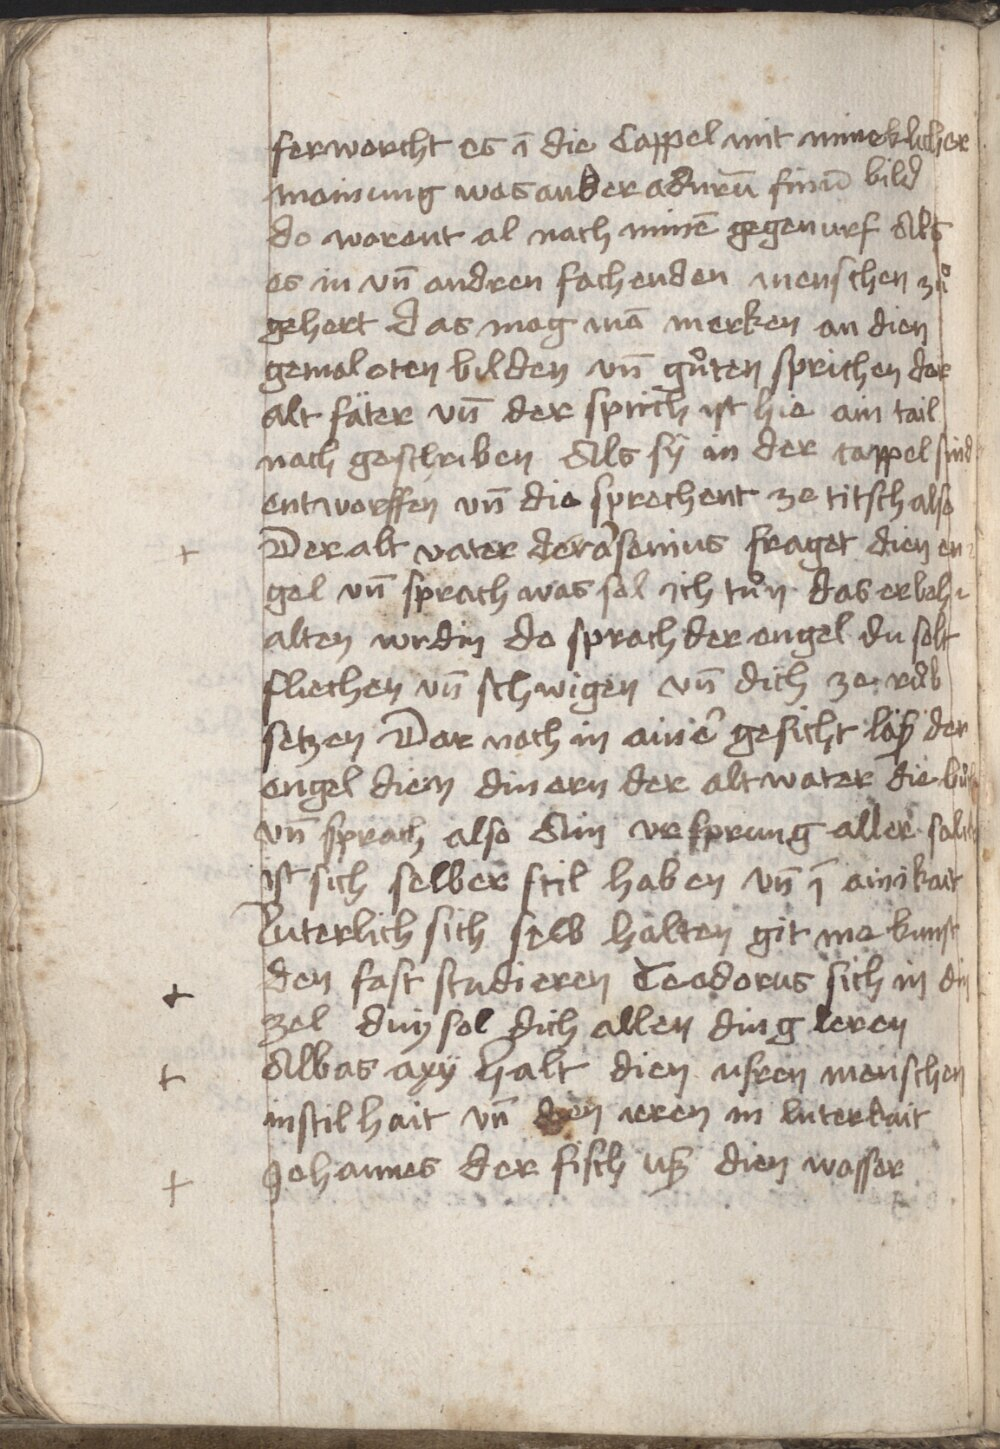 ferworcht es ī die Cappel mit mineklicher
mainung was ander
do warent al nach minē gegenurf Als
es in vn̄ andren fachenden menschen zů
gehert Das mag mā merken an dien
gemaloten bilden vn̄ gůten sprichen der
alt fäter vn̄ der sprich ist hie ain tail
nach geschriben Als sy̆ in der cappel sind
entworffen vn̄ die sprechent ze titsch also
+ Der alt vater der arsenius fraget dien en
gel vn̄ sprach was sol ich tůn das er beh
alten wrdin do sprach der engel du solt
fliechen vn̄ schwigen vn̄ dich ze růb
setzen Dar nach in ainer gesicht der
engel dien dinern der alt water die
vn̄ sprach also Ain vrsprung aller
ist sich selber stil haben vn̄ ī ainikait
Luterlich sich selb halten git me kunst
den fast studieren Teodorus sich in din
+ zel diu sol dich allen ding leren
+ Abbas halt dien usren menschen
in stilhait vn̄ den ieren in luterkait
+ Johannes der fisch uß dien wasser